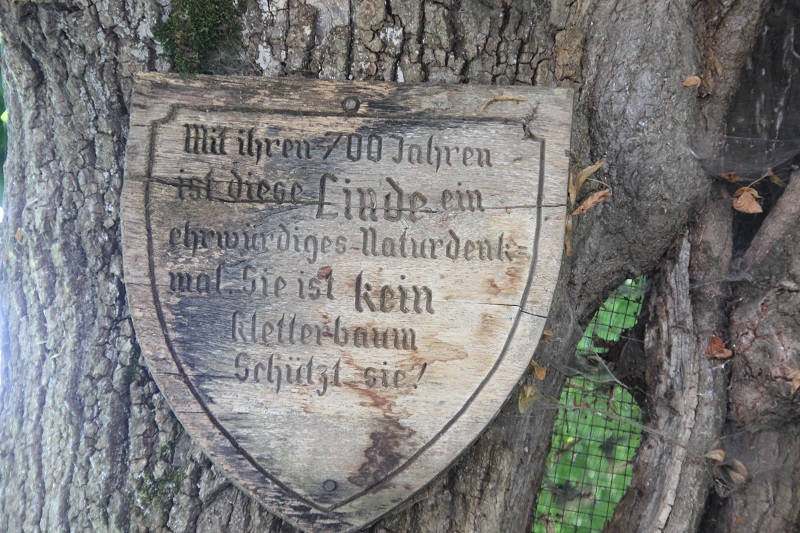 Mit ihren 700 Jahren
ist diese Linde ein
ehrwürdiges Naturdenk-
mal. Sie ist kein
Kletterbaum
Schützt sie!